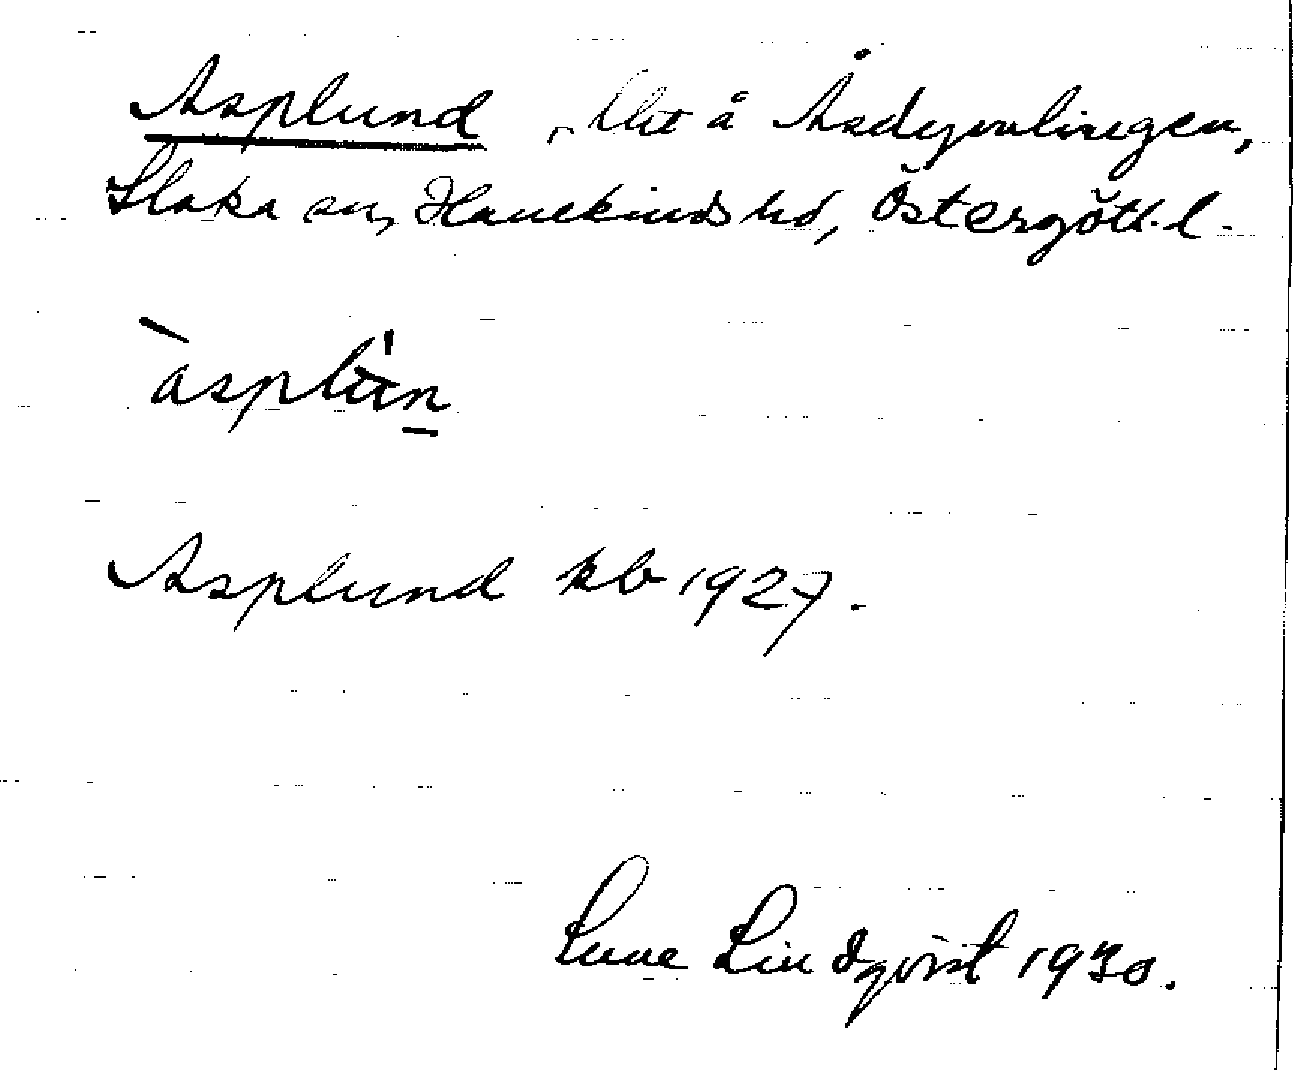 Asplund, lht å Åsdymlingen,
Slaka sn, Hanekinds hd, Östergötl.
àsplun
Asplund kb 1927.
Sune Lindqvist 1930.